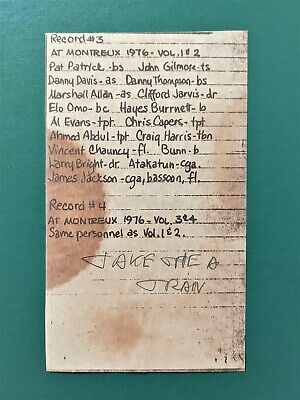 Record #3
AT MONTREUX 1976 - VOL. 1 & 2
Pat Patrick - bs John Gilmore - ts
Danny Davis - as Danny Thompson - bs
Marshall Allan - as Clifford Jarvis - dr
Elo Omo - bc Hayes Burrnett - b
Al Evans - tpt. Chris Capers - tpt
Ahmed Abdul - tpt Craig Harris - tbn
Vincent Chauncy - fl. Bunn - b
Larry Bright - dr. Atakatun - cga.
James Jackson - cga, bassoon, fl.
Record #4
AT MONTREUX 1976 - VOL. 3&4
Same personnel as Vol. 1 & 2.
TAKE THE A
TRAN